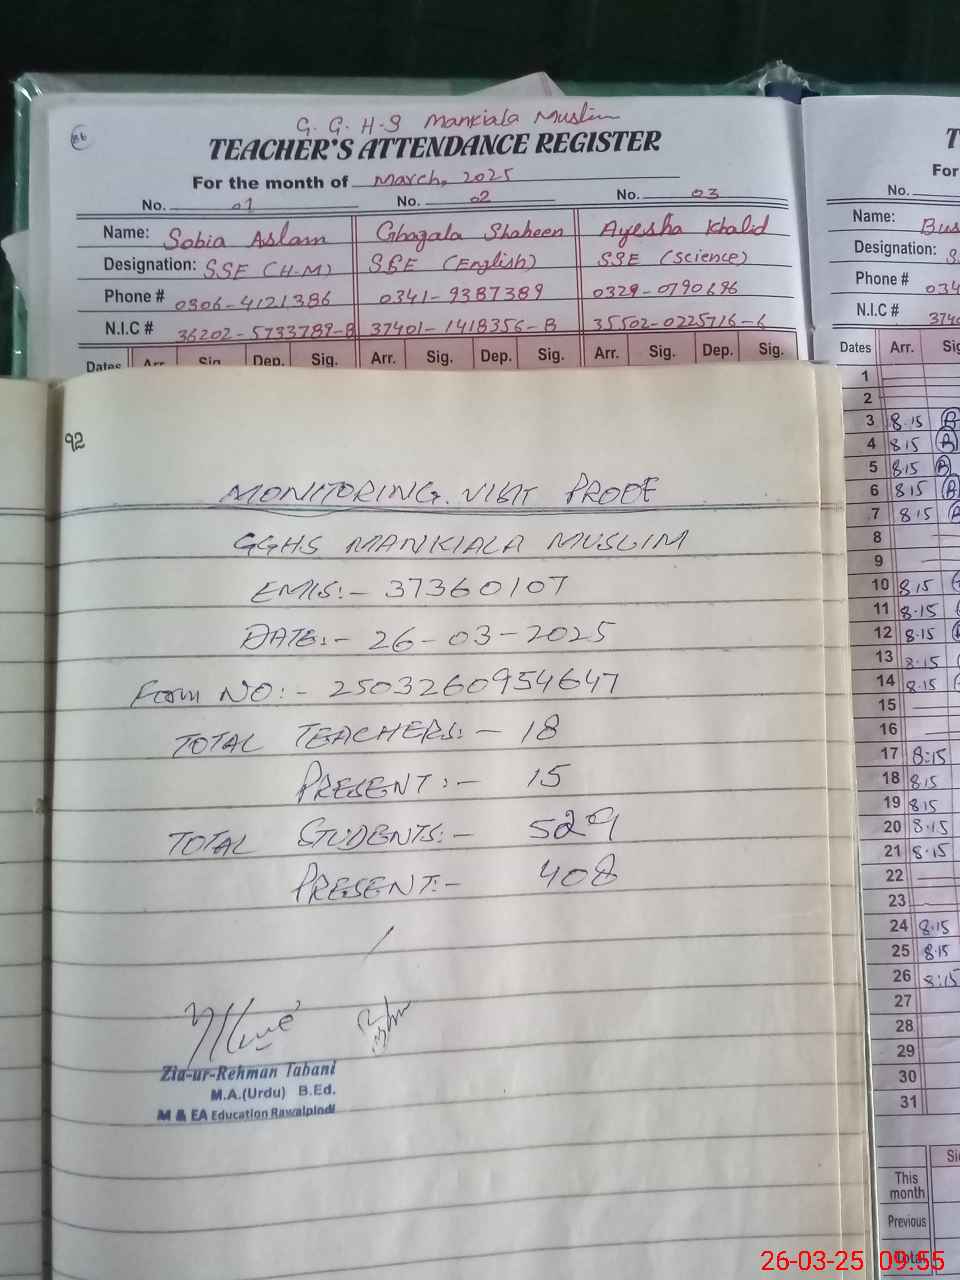 G. G. H-S Mankiala Muslim
TEACHER'S ATTENDANCE REGISTER
For the month of March, 2025
No. 01 No. 02 No. 03
Name: Sobia Aslam Ghazala Shaheen Ayesha Khalid
Designation: SSE (H-M) SSE (English) SSE (Science)
Phone # 0306-4121386 0341-9387389 0329-0790696
N.I.C # 36202-5733789-8 37401-1418356-8 35502-0225716-6
Dates Arr. Sig. Dep. Sig. Arr. Sig. Dep. Sig. Arr. Sig. Dep. Sig.
T
For
No.
Name: Bus
Designation: S
Phone # 034
N.I.C # 3740
Dates Arr. Sig
1
2
3 8.15
4 8.15
5 8.15
6 8.15
7 8.15
8
9
10 8.15
11 8.15
12 8.15
13 8.15
14 8.15
15
16
17 8:15
18 8.15
19 8.15
20 8.15
21 8.15
22
23
24 8.15
25 8.15
26 8:15
27
28
29
30
31
Si
This
month
Previous
Total
92
MONITORING VISIT PROOF
GGHS MANKIALA MUSLIM
EMIS:- 37360107
DATE:- 26-03-2025
Form NO:- 2503260954647
TOTAL TEACHERS:- 18
PRESENT:- 15
TOTAL STUDENTS:- 529
PRESENT:- 408
Zia-ur-Rehman Tabani
M.A.(Urdu) B.Ed.
M & EA Education Rawalpindi
26-03-25 09:55